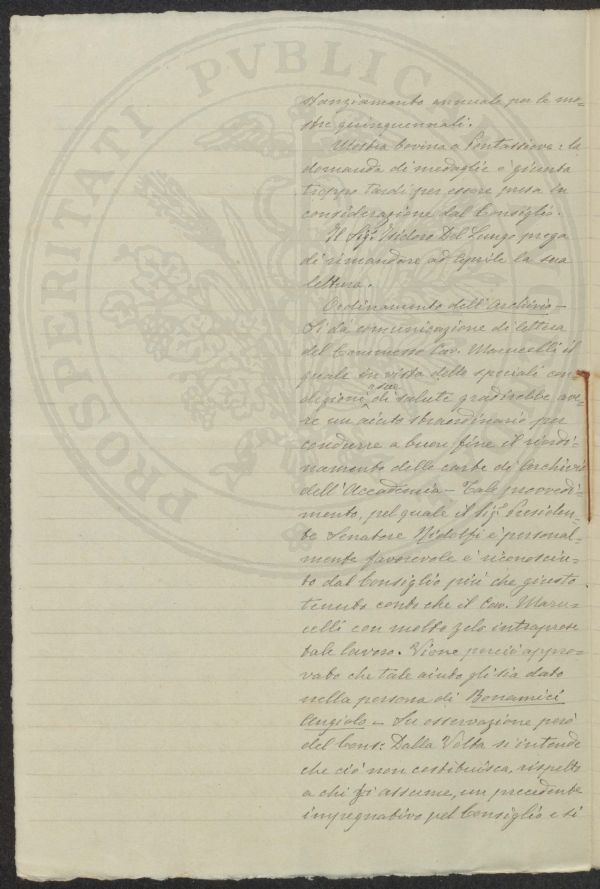 PROSPERITATI PVBLICAE
stanziamento annuale per le mo=
stre quinquennali.
Mostra bovina a Pontassieve: la
domanda di medaglie è giunta
troppo tardi per essere presa in
considerazione dal Consiglio.
Il Sig. Isidoro Del Lungo prega
di rimandare ad Aprile la sua
lettura.
Ordinamento dell'Archivio —
Si dà comunicazione di lettera
del Commesso Cav. Marucelli il
quale in vista delle speciali con=
dizioni di salute gradirebbe ave=
re un aiuto straordinario per
condurre a buon fine il riordi=
namento delle carte di Archivio
dell'Accademia — Tale provvedi=
mento, pel quale il Sig. Presiden=
te Senatore Ridolfi è personal=
mente favorevole è riconosciu=
to dal Consiglio più che giusto
tenuto conto che il Cav. Maru=
celli con molto zelo intraprese
tale lavoro. Viene perciò appro=
vato che tale aiuto gli sia dato
nella persona di Bonamici
Angiolo — Su osservazione però
del Cons: Dalla Volta si intende
che ciò non costituisca, rispetto
a chi si assume, un precedente
impegnativo pel Consiglio e si